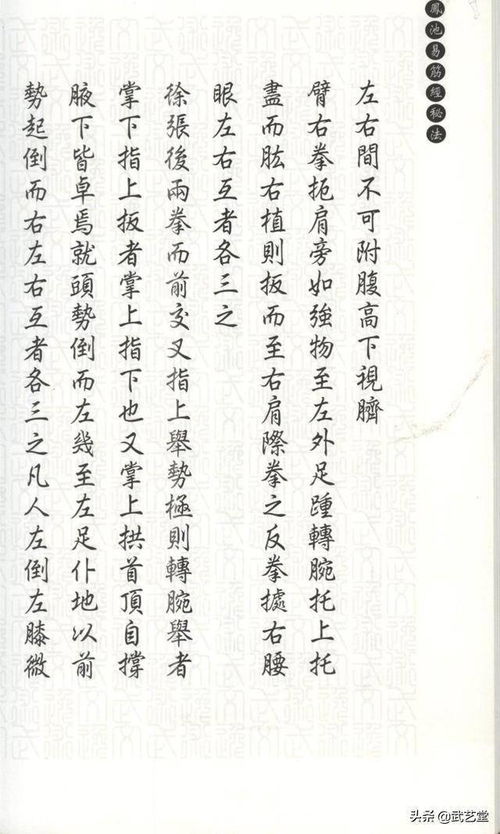 鳳池易筋經秘法
左右間不可附腹高下視臍
臂右拳扼肩旁如強物至左外足踵轉腕托上托
盡而肱右植則扳而至右肩際拳之反拳據右腰
眼左右互者各三之
徐張後兩拳而前交叉指上舉勢極則轉腕舉者
掌下指上扳者掌上指下也又掌上拱首頂自撐
腋下皆卓焉就頭勢倒而左幾至左足仆地以前
勢起倒而右左右互者各三之凡人左倒左膝微
头条 @武艺堂